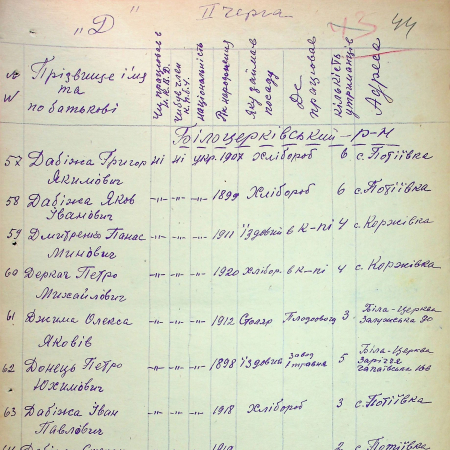 „Д" ІІ черга 43 44
№ Прізвище імя та по батькові Чи працював в Н.К.В.Д. Чи був член К.П.б.У. національність Рік народження Яку займав посаду Де працював кількість утриманців Адреса
Білоцерківський р-н
57 Дабіжа Григор Якимович ні ні укр. 1907 Хлібороб 6 с. Потіївка
58 Дабіжа Яков Іванович -"- -"- -"- 1899 Хлібороб 6 с. Потіївка
59 Дмитренко Панас Минович -"- -"- -"- 1911 їздовий в к-пі 4 с. Коржівка
60 Деркач Петро Михайлович -"- -"- -"- 1920 Хлібор. в к-пі 4 с. Коржівка
61 Джима Олекса Яковів -"- -"- -"- 1912 Столяр 3 Біла-Церква
62 Донець Петро Юхимович -"- -"- -"- 1898 їздовий завод 1 травня 5 Біла-Церква Заріччя
63 Дабіжа Іван Павлович -"- -"- -"- 1918 Хлібороб 3 с. Потіївка